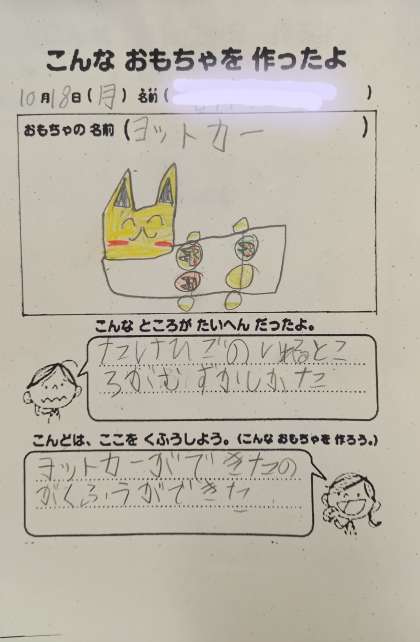 こんな おもちゃを 作ったよ
10月18日(月) 名前( )
おもちゃの 名前(ヨットカー)
こんな ところが たいへん だったよ。
たけひごのいれるとこ
ろがむずかしかた
こんどは、ここを くふうしよう。(こんな おもちゃを 作ろう。)
ヨットカーができたの
がくふうができた